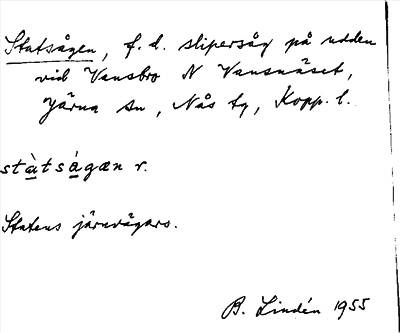 Statsågen, f. d. slipersåg på udden
vid Vansbro N Vansnäset,
Järna sn, Nås tg, Kopp. l.
stàtságæn r.
Statens järnvägars.
B. Lindén 1955